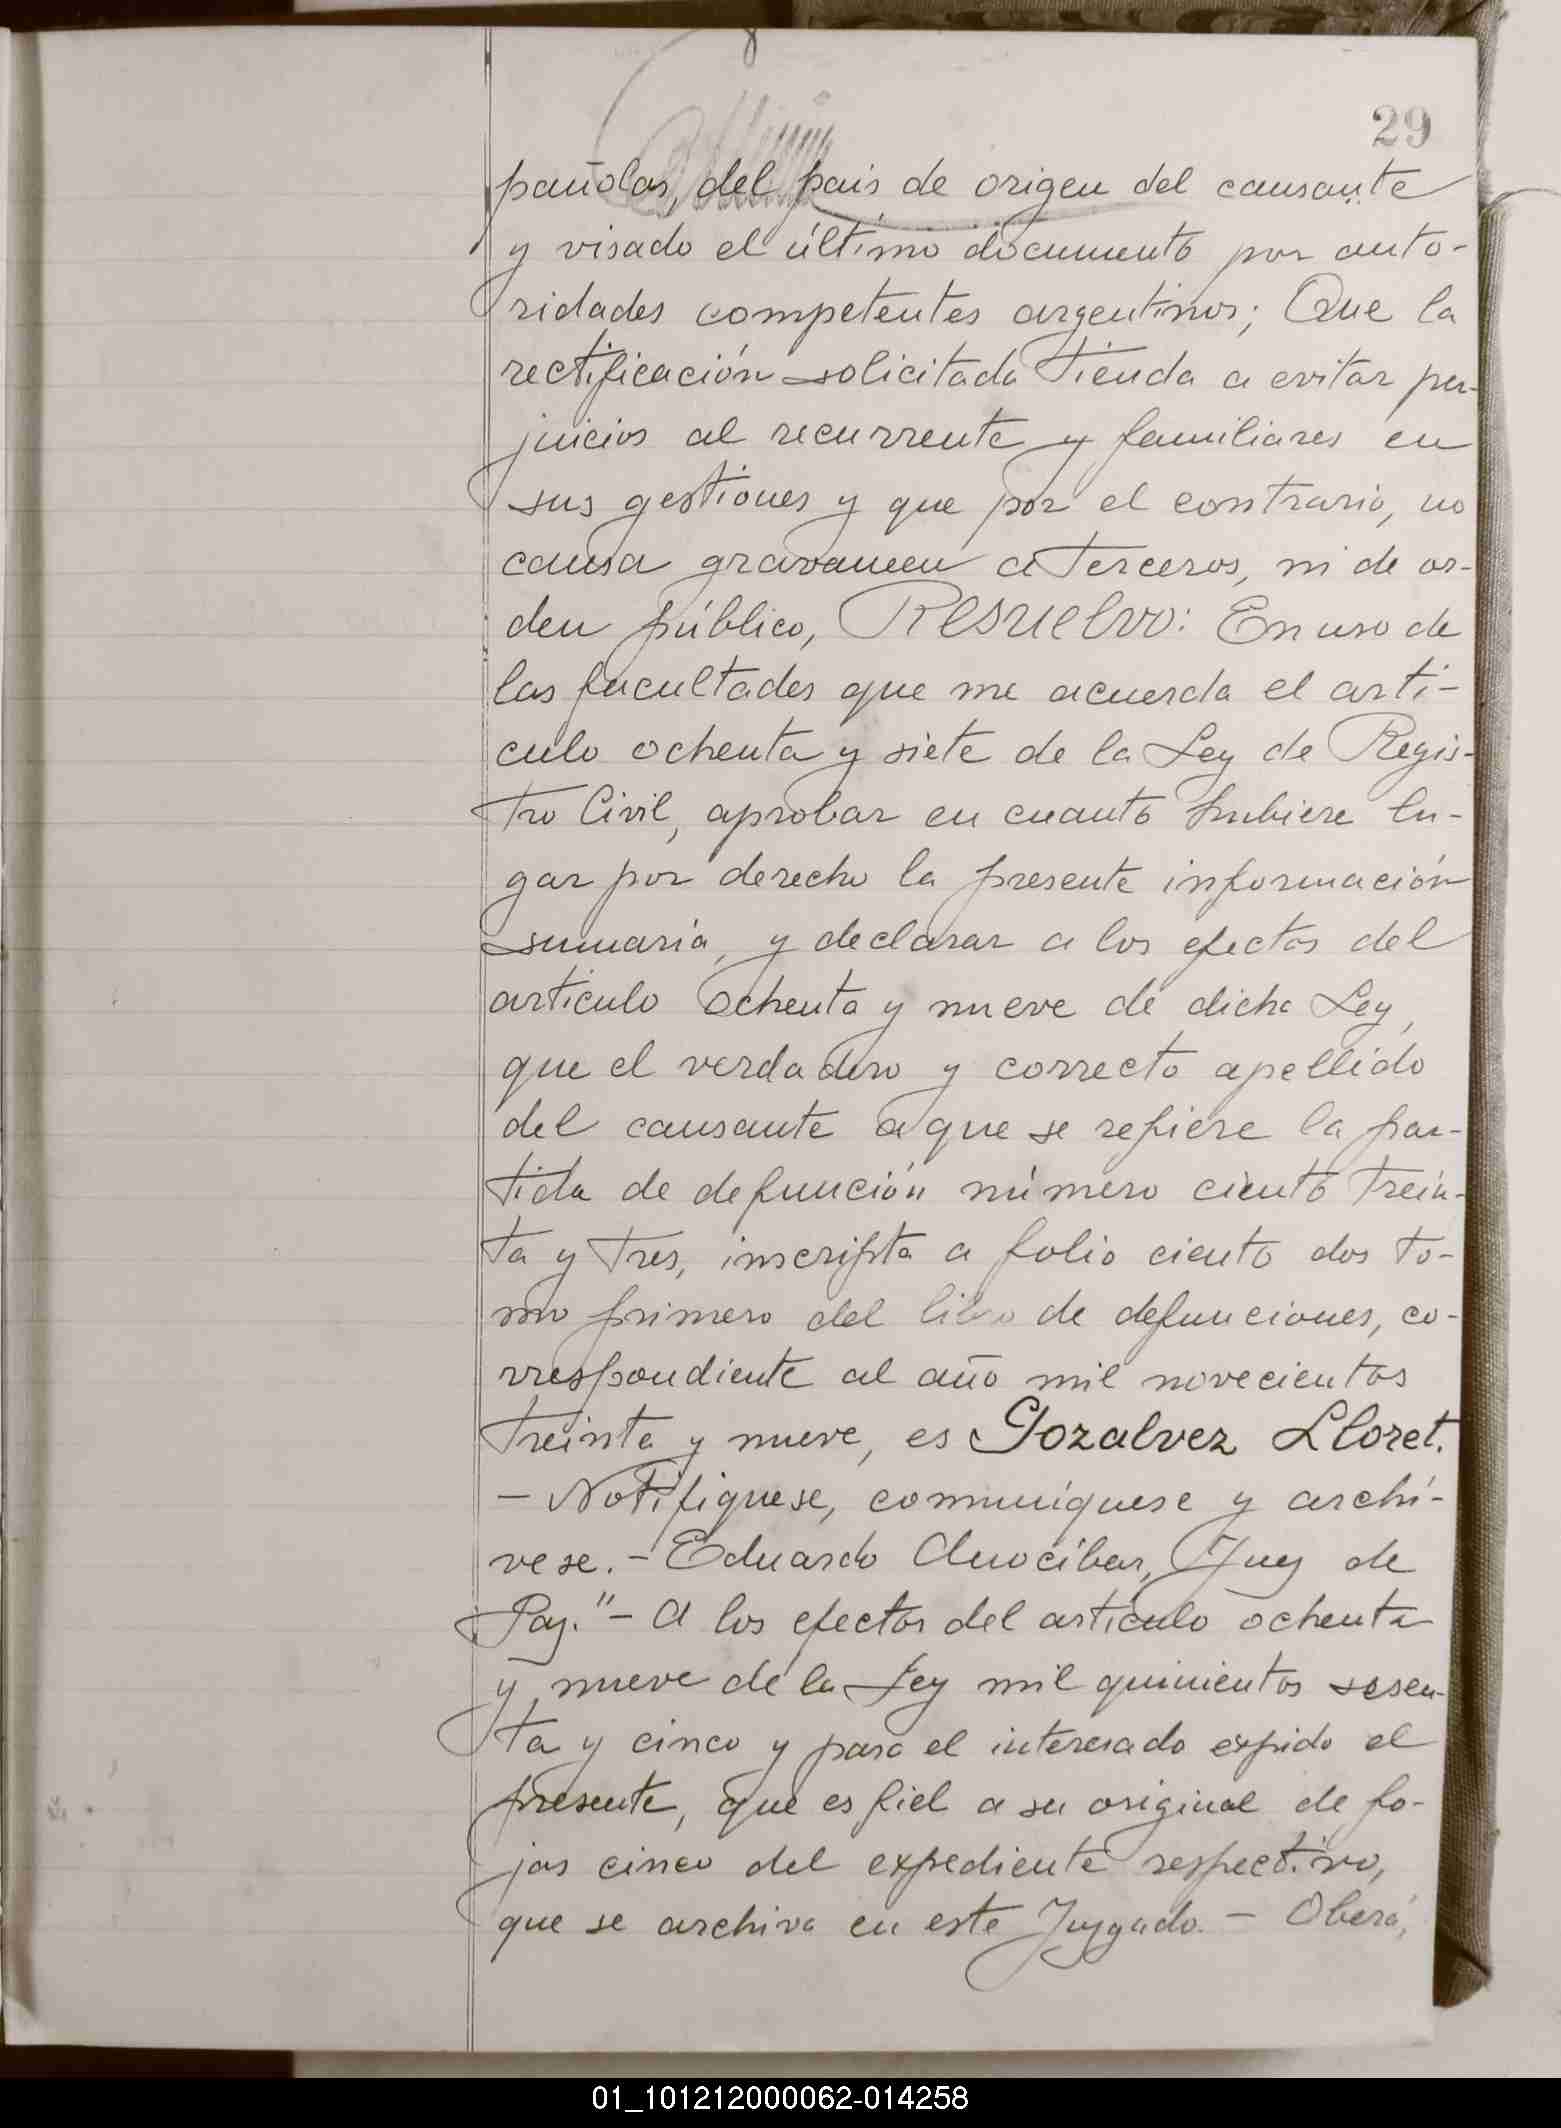 29
pañolas, del pais de origen del causante
y visado el último documento por auto-
ridades competentes argentinos; Que la
rectificación solicitada tienda a evitar per-
juicios al recurrente y familiares en
sus gestiones y que por el contrario, no
causa gravamen a terceros, ni de or-
den público, Resuelvo: En uso de
las facultades que me acuerda el artí-
culo ochenta y siete de la Ley de Regis-
tro Civil, aprobar en cuanto hubiere lu-
gar por derecho la presente información
sumaria, y declarar a los efectos del
articulo ochenta y nueve de dicha Ley,
que el verdadero y correcto apellido
del causante a que se refiere la par-
tida de defunción número ciento trein-
ta y tres, inscripta a folio ciento dos to-
mo primero del libro de defunciones, co-
rrespondiente al año mil novecientos
treinta y nueve, es Gozalvez Lloret.
- Notifiquese, comuníquese y archí-
vese. - Eduardo Anocíbar, Juez de
Paz." - A los efectos del artículo ochenta
y nueve de la Ley mil quinientos sesen-
ta y cinco y para el interesado expido el
presente, que es fiel a su original de fo-
jas cinco del expediente respectivo,
que se archiva en este Juzgado. - Oberá,
01_101212000062-014258